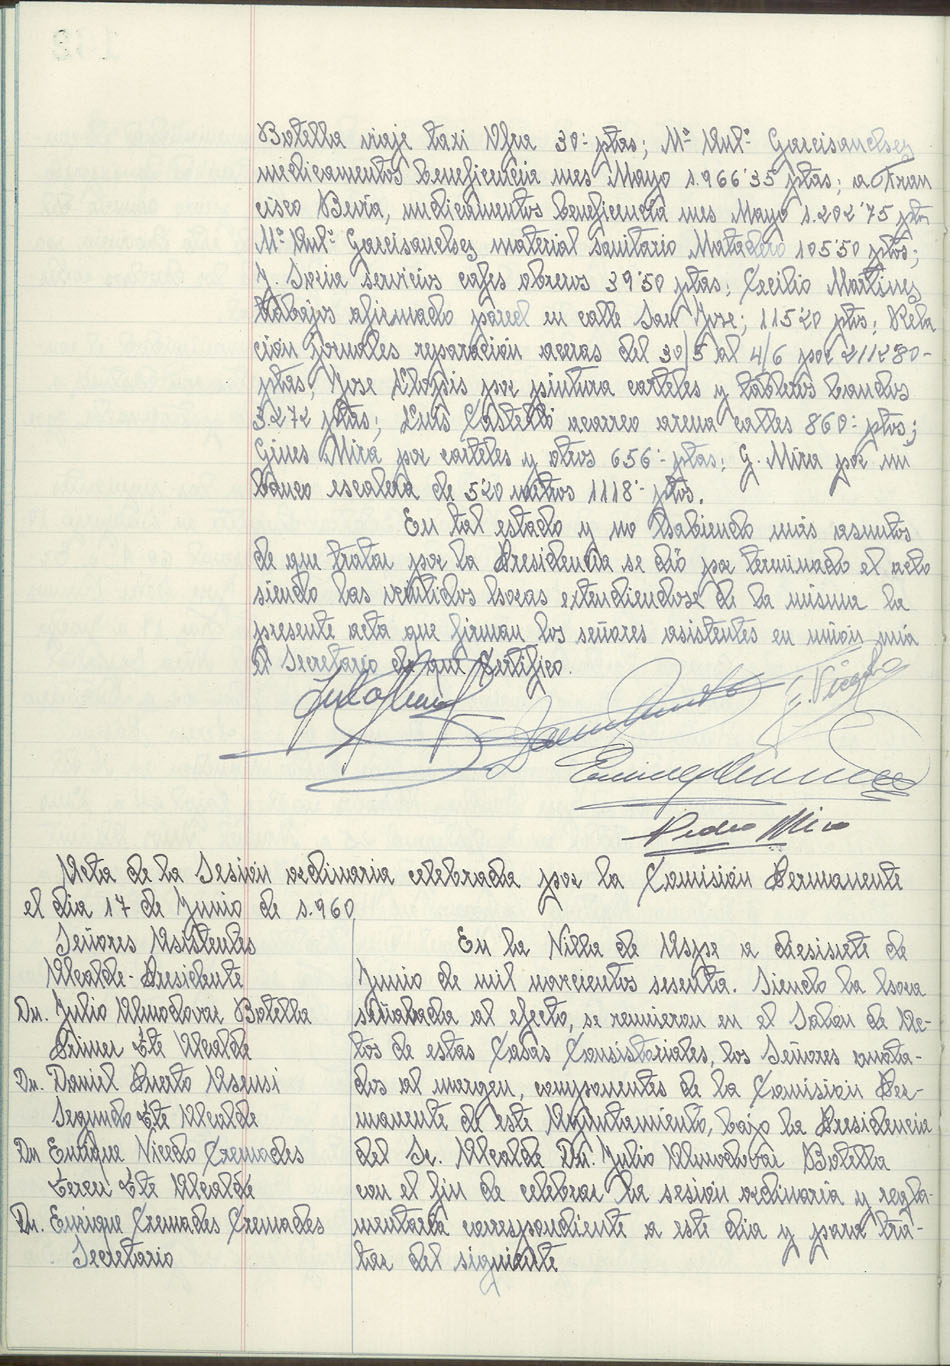 Botella viaje taxi Upra 30'- ptas; Mª Antª Garcisanchez
medicamentos beneficencia mes Mayo 1.966'35 ptas; a Fran
cisco Beviá, medicamentos beneficencia mes Mayo 1.202'75 pts
Mª Antª Garcisanchez material sanitario Matadero 105'50 ptas;
J. Soria servicios cafes obreros 39'50 ptas; Cecilio Martinez
trabajos afirmado pared en calle San Jose; 11520 ptas; Rela
ción jornales reparación aceras del 30/5 al 4/6 por 211280-
ptas; Jose Llopis por pintura carteles y tableros bandos
3.272 ptas; Luis Castelló acarreo arena calles 860'- ptas;
Gines Mira por carteles y otros 656'- ptas; G. Mira por un
banco escalera de 520 metros 1118'- ptas.
En tal estado y no habiendo más asuntos
de que tratar por la Presidencia se dió por terminado el acto
siendo las veintidos horas extendiendose de la misma la
presente acta que firman los señores asistentes en unión mía
el Secretario de que Certifico.
E. Vicedo
Pedro Mira
Acta de la Sesión ordinaria celebrada por la Comisión Permanente
el dia 17 de Junio de 1.960
Señores Asistentes
Alcalde-Presidente
Dn. Julio Almodovar Botella
Primer Tte Alcalde
Dn. Daniel Puerto Asensi
Segundo Tte Alcalde
Dn Enrique Vicedo Cremades
Tercer Tte Alcalde
Dn. Enrique Cremades Cremades
Secretario
En la Villa de Aspe a diesisete de
Junio de mil novcientos sesenta. Siendo la hora
señalada al efecto, se reunieron en el Salon de Ac-
tos de estas Casas Consistoriales, los Señores anota-
dos al margen, componentes de la Comision Per-
manente de este Ayuntamiento, bajo la Presidencia
del Sr. Alcalde Dn. Julio Almodovar Botella
con el fin de celebrar la sesión ordinaria y regla-
mentaria correspondiente a este dia y para tra-
tar del siguiente